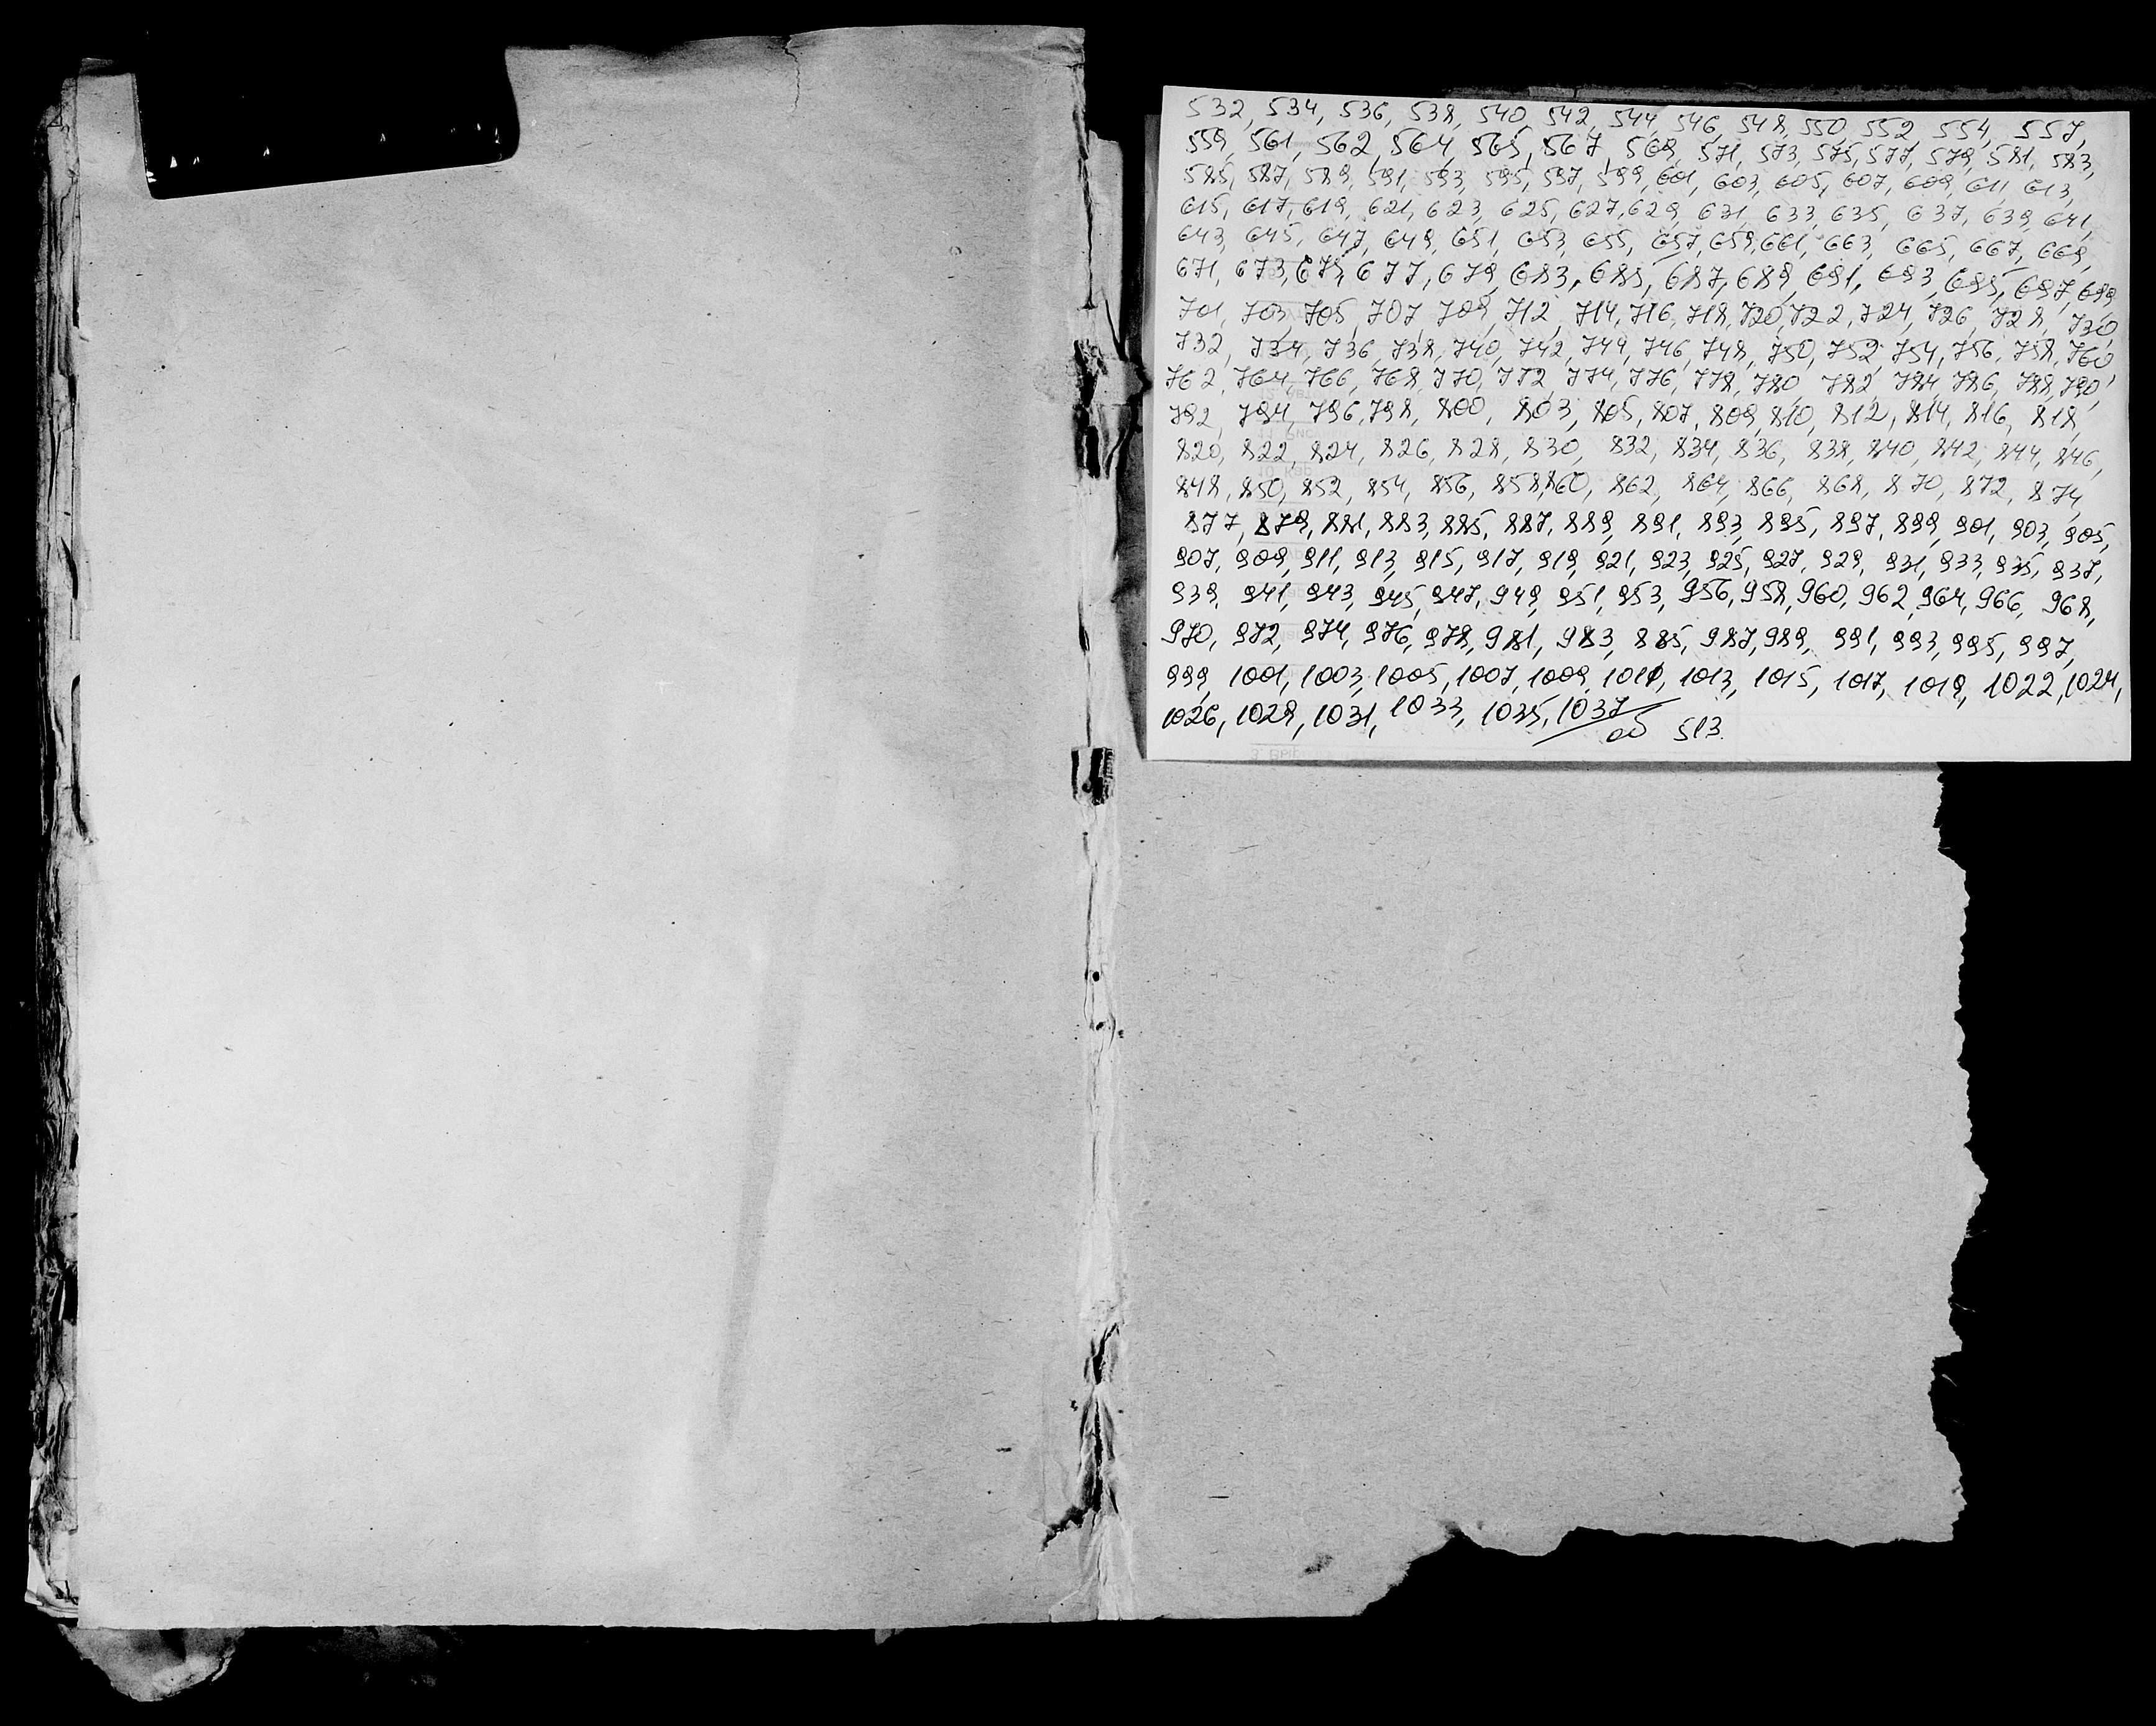 532, 534, 536, 538, 540, 542, 544, 546, 548, 550, 552, 554, 557,
559, 561, 562, 564, 565, 567, 569, 571, 573, 575, 577, 579, 581, 583,
585, 587, 589, 591, 593, 595, 597, 599, 601, 603, 605, 607, 609, 611, 613,
615, 617, 619, 621, 623, 625, 627, 629, 631, 633, 635, 637, 639, 641,
643, 645, 647, 649, 651, 653, 655, 657, 659, 661, 663, 665, 667, 669,
671, 673, 675, 677, 679, 683, 685, 687, 689, 691, 693, 695, 697, 699
701, 703, 705, 707, 709, 712, 714, 716, 718, 720, 722, 724, 726, 728, 730,
732, 734, 736, 738, 740, 742, 744, 746, 748, 750, 752, 754, 756, 758, 760
762, 764, 766, 768, 770, 772, 774, 776, 778, 780, 782, 784, 786, 788, 790,
792, 794, 796, 798, 800, 803, 805, 807, 809, 810, 812, 814, 816, 818,
820, 822, 824, 826, 828, 830, 832, 834, 836, 838, 840, 842, 844, 846,
848, 850, 852, 854, 856, 858, 860, 862, 864, 866, 868, 870, 872, 874,
877, 879, 881, 883, 885, 887, 889, 891, 893, 895, 897, 899, 901, 903, 905,
907, 909, 911, 913, 915, 917, 919, 921, 923, 925, 927, 929, 931, 933, 935, 937,
939, 941, 943, 945, 947, 949, 951, 953, 956, 958, 960, 962, 964, 966, 968,
970, 972, 974, 976, 978, 981, 983, 885, 987, 989, 991, 993, 995, 997,
999, 1001, 1003, 1005, 1007, 1009, 1011, 1013, 1015, 1017, 1019, 1022, 1024,
1026, 1029, 1031, 1033, 1035, 1037
513.